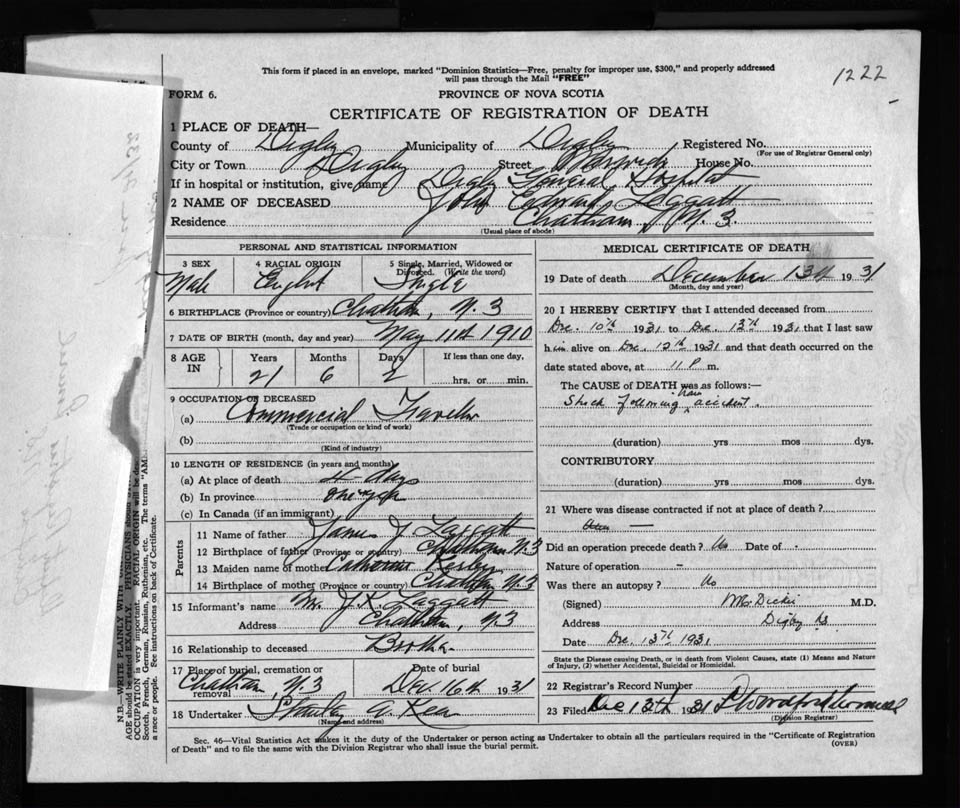 This form if placed in an envelope, marked "Dominion Statistics—Free, penalty for improper use, $300," and properly addressed
will pass through the Mail "FREE"
1222
FORM 6.
PROVINCE OF NOVA SCOTIA
CERTIFICATE OF REGISTRATION OF DEATH
1 PLACE OF DEATH—
County of Digby Municipality of Digby Registered No.
(For use of Registrar General only)
City or Town Digby Street Warwick House No.
If in hospital or institution, give name Digby General Hospital
2 NAME OF DECEASED John Edward Leggatt
Residence Chatham, N.B.
(Usual place of abode)
PERSONAL AND STATISTICAL INFORMATION
3 SEX 4 RACIAL ORIGIN 5 Single, Married, Widowed or
Divorced. (Write the word)
Male English Single
6 BIRTHPLACE (Province or country) Chatham, N.B.
7 DATE OF BIRTH (month, day and year) May 11th 1910
8 AGE IN Years Months Days If less than one day,
21 6 2 hrs. or min.
9 OCCUPATION OF DECEASED
(a) Commercial Traveller
(Trade or occupation or kind of work)
(b)
(Kind of industry)
10 LENGTH OF RESIDENCE (in years and months)
(a) At place of death days
(b) In province
(c) In Canada (if an immigrant)
Parents
11 Name of father James J. Laggatt
12 Birthplace of father (Province or country) Chatham N.B.
13 Maiden name of mother Catherine
14 Birthplace of mother (Province or country) Chatham N.B.
15 Informant's name Mr. J. K. Laggatt
Address Chatham, N.B.
16 Relationship to deceased Brother
17 Place of burial, cremation or
removal Chatham N.B. Date of burial Dec 16th 1931
18 Undertaker Stanley A.
(Name and address)
MEDICAL CERTIFICATE OF DEATH
19 Date of death December 13th 1931
(Month, day and year)
20 I HEREBY CERTIFY that I attended deceased from
Dec. 10th 1931 to Dec. 13th 1931 that I last saw
him alive on Dec. 12th 1931 and that death occurred on the
date stated above, at 11 P m.
The CAUSE of DEATH was as follows:—
Shock following train accident.
(duration) yrs mos dys.
CONTRIBUTORY
(duration) yrs mos dys.
21 Where was disease contracted if not at place of death?
Did an operation precede death? No Date of
Nature of operation —
Was there an autopsy? No
(Signed) M.D.
Address Digby NS
Date Dec. 13th 1931
State the Disease causing Death, or in death from Violent Causes, state (1) Means and Nature
of Injury, (2) whether Accidental, Suicidal or Homicidal.
22 Registrar's Record Number
23 Filed Dec 13th 1931
(Division Registrar)
Sec. 46—Vital Statistics Act makes it the duty of the Undertaker or person acting as Undertaker to obtain all the particulars required in the "Certificate of Registration
of Death" and to file the same with the Division Registrar who shall issue the burial permit.
(OVER)
N.B.—WRITE PLAINLY WITH
AGE should be stated EXACTLY. PHYSICIANS should
OCCUPATION is very important. RACIAL ORIGIN will be
Scotch, French, German, Russian, Ruthenian, etc. The terms "AM
a race or people. See instructions on back of Certificate.